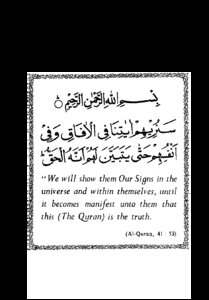 بِسْمِ اللهِ الرَّحْمٰنِ الرَّحِيْمِ
سَنُرِيْهِمْ اٰيٰتِنَا فِى الْاٰفَاقِ وَفِىْٓ
اَنْفُسِهِمْ حَتّٰى يَتَبَيَّنَ لَهُمْ اَنَّهُ الْحَقُّ
“We will show them Our Signs in the
universe and within themselves, until
it becomes manifest unto them that
this (The Quran) is the truth.
(Al-Quran, 41 : 53)